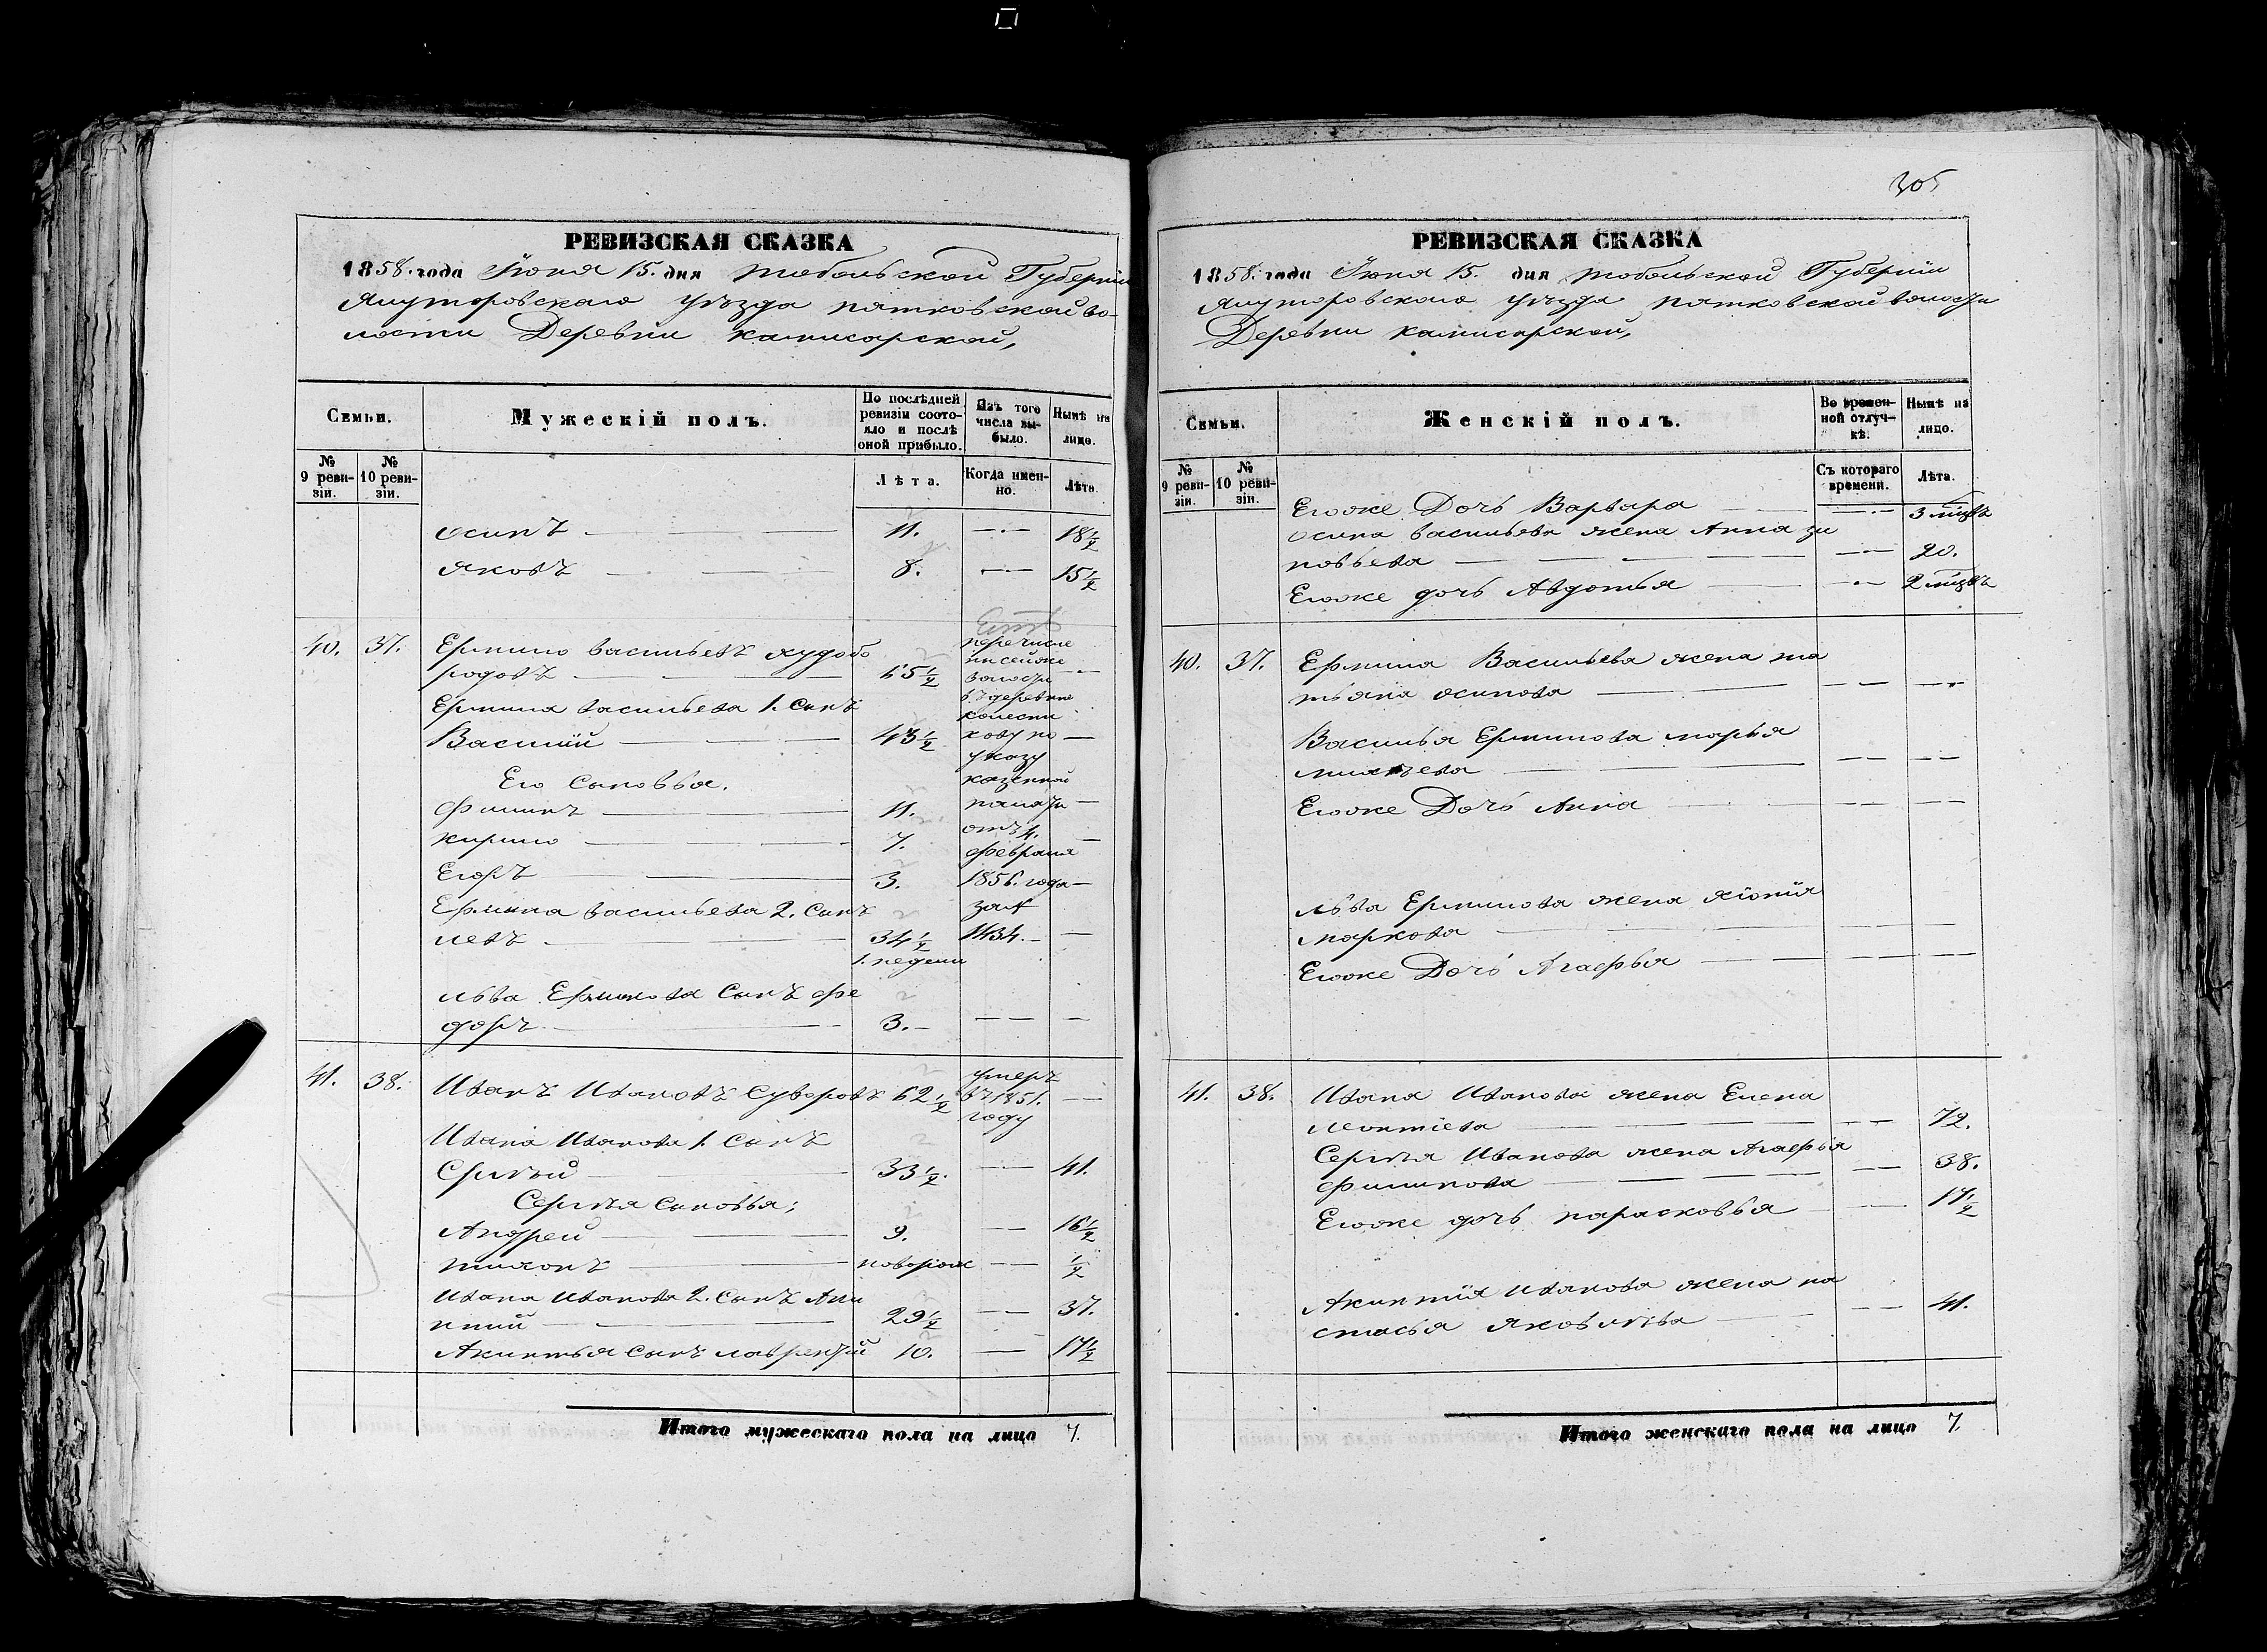 РЕВИЗСКАЯ СКАЗКА
1858. года Июня 15. дня Тобольской Губернии
Ялуторовскаго уѣзда пятковской во-
лости Деревни камисарской,
Семьи.
Мужескій полъ.
По послѣдней ревизіи состо-яло и послѣ оной прибыло.
Изъ того числа вы-было.
Нынѣ на лицо.
№ 9 реви-зіи.
№ 10 реви-зіи.
Лѣта.
Когда имен-но.
Лѣта.
осипъ — 11. — 18½
яковъ — 8. — 15½
40. 37. Ермило васильевъ худобо
родовъ — 65½ —
перечисле
волости
въ деревню
колесни
кову по
указу
казенной
палаты
отъ 4.
февраля
1856. года
за №
1434.
Ермила васильева 1. сынъ
Василій — 43½ —
Его сыновья.
филипъ — 11. —
кирило — 7. —
Егоръ — 3. —
Ермила васильева 2. сынъ
левъ — 34½ —
1. недели
льва Ермилова сынъ фе
доръ — 3. — — —
41. 38. Иванъ Ивановъ Суворовъ 62½ умеръ въ 1851. году —
Ивана Иванова 1. сынъ
Сергѣй — 33½. — 41.
Сергѣя сыновья;
Андрей — 9. — 16½
тихонъ — новорож — ½
Ивана Иванова 2. сынъ Аки
нтий — 29½ — 37.
Акинтья сынъ лаврентій 10. — 17½
Итого мужескаго пола на лицо 7.
305
РЕВИЗСКАЯ СКАЗКА
1858. года Июня 15. дня Тобольской Губернии
Ялуторовскаго уѣзда пятковской волости
Деревни камисарской,
Семьи.
Женскій полъ.
Во времен-ной отлуч-кѣ.
Нынѣ на лицо.
№ 9 реви-зіи.
№ 10 реви-зіи.
Съ котораго времени.
Лѣта.
Егоже Дочь Варвара — 3 мцзвъ
осипа васильева жена Анна зи
новьева — 20.
Егоже дочь Авдотья — 2 мцзвъ
40. 37. Ермила Васильева жена та
тьяна осипова — — —
Василья Ермилова марья
— — —
Егоже Дочь Анна — — —
льва Ермилова жена хіонія
маркова — — —
Егоже Дочь Агафья — — —
41. 38. Ивана Иванова жена Елена
леонтіева — — 72.
Сергѣя Иванова жена Агафья
филипова — — 38.
Егоже дочь парасковья — 17½
Акинтія Иванова жена на
стасья яковлева — — 41.
Итого женскаго пола на лицо 7.